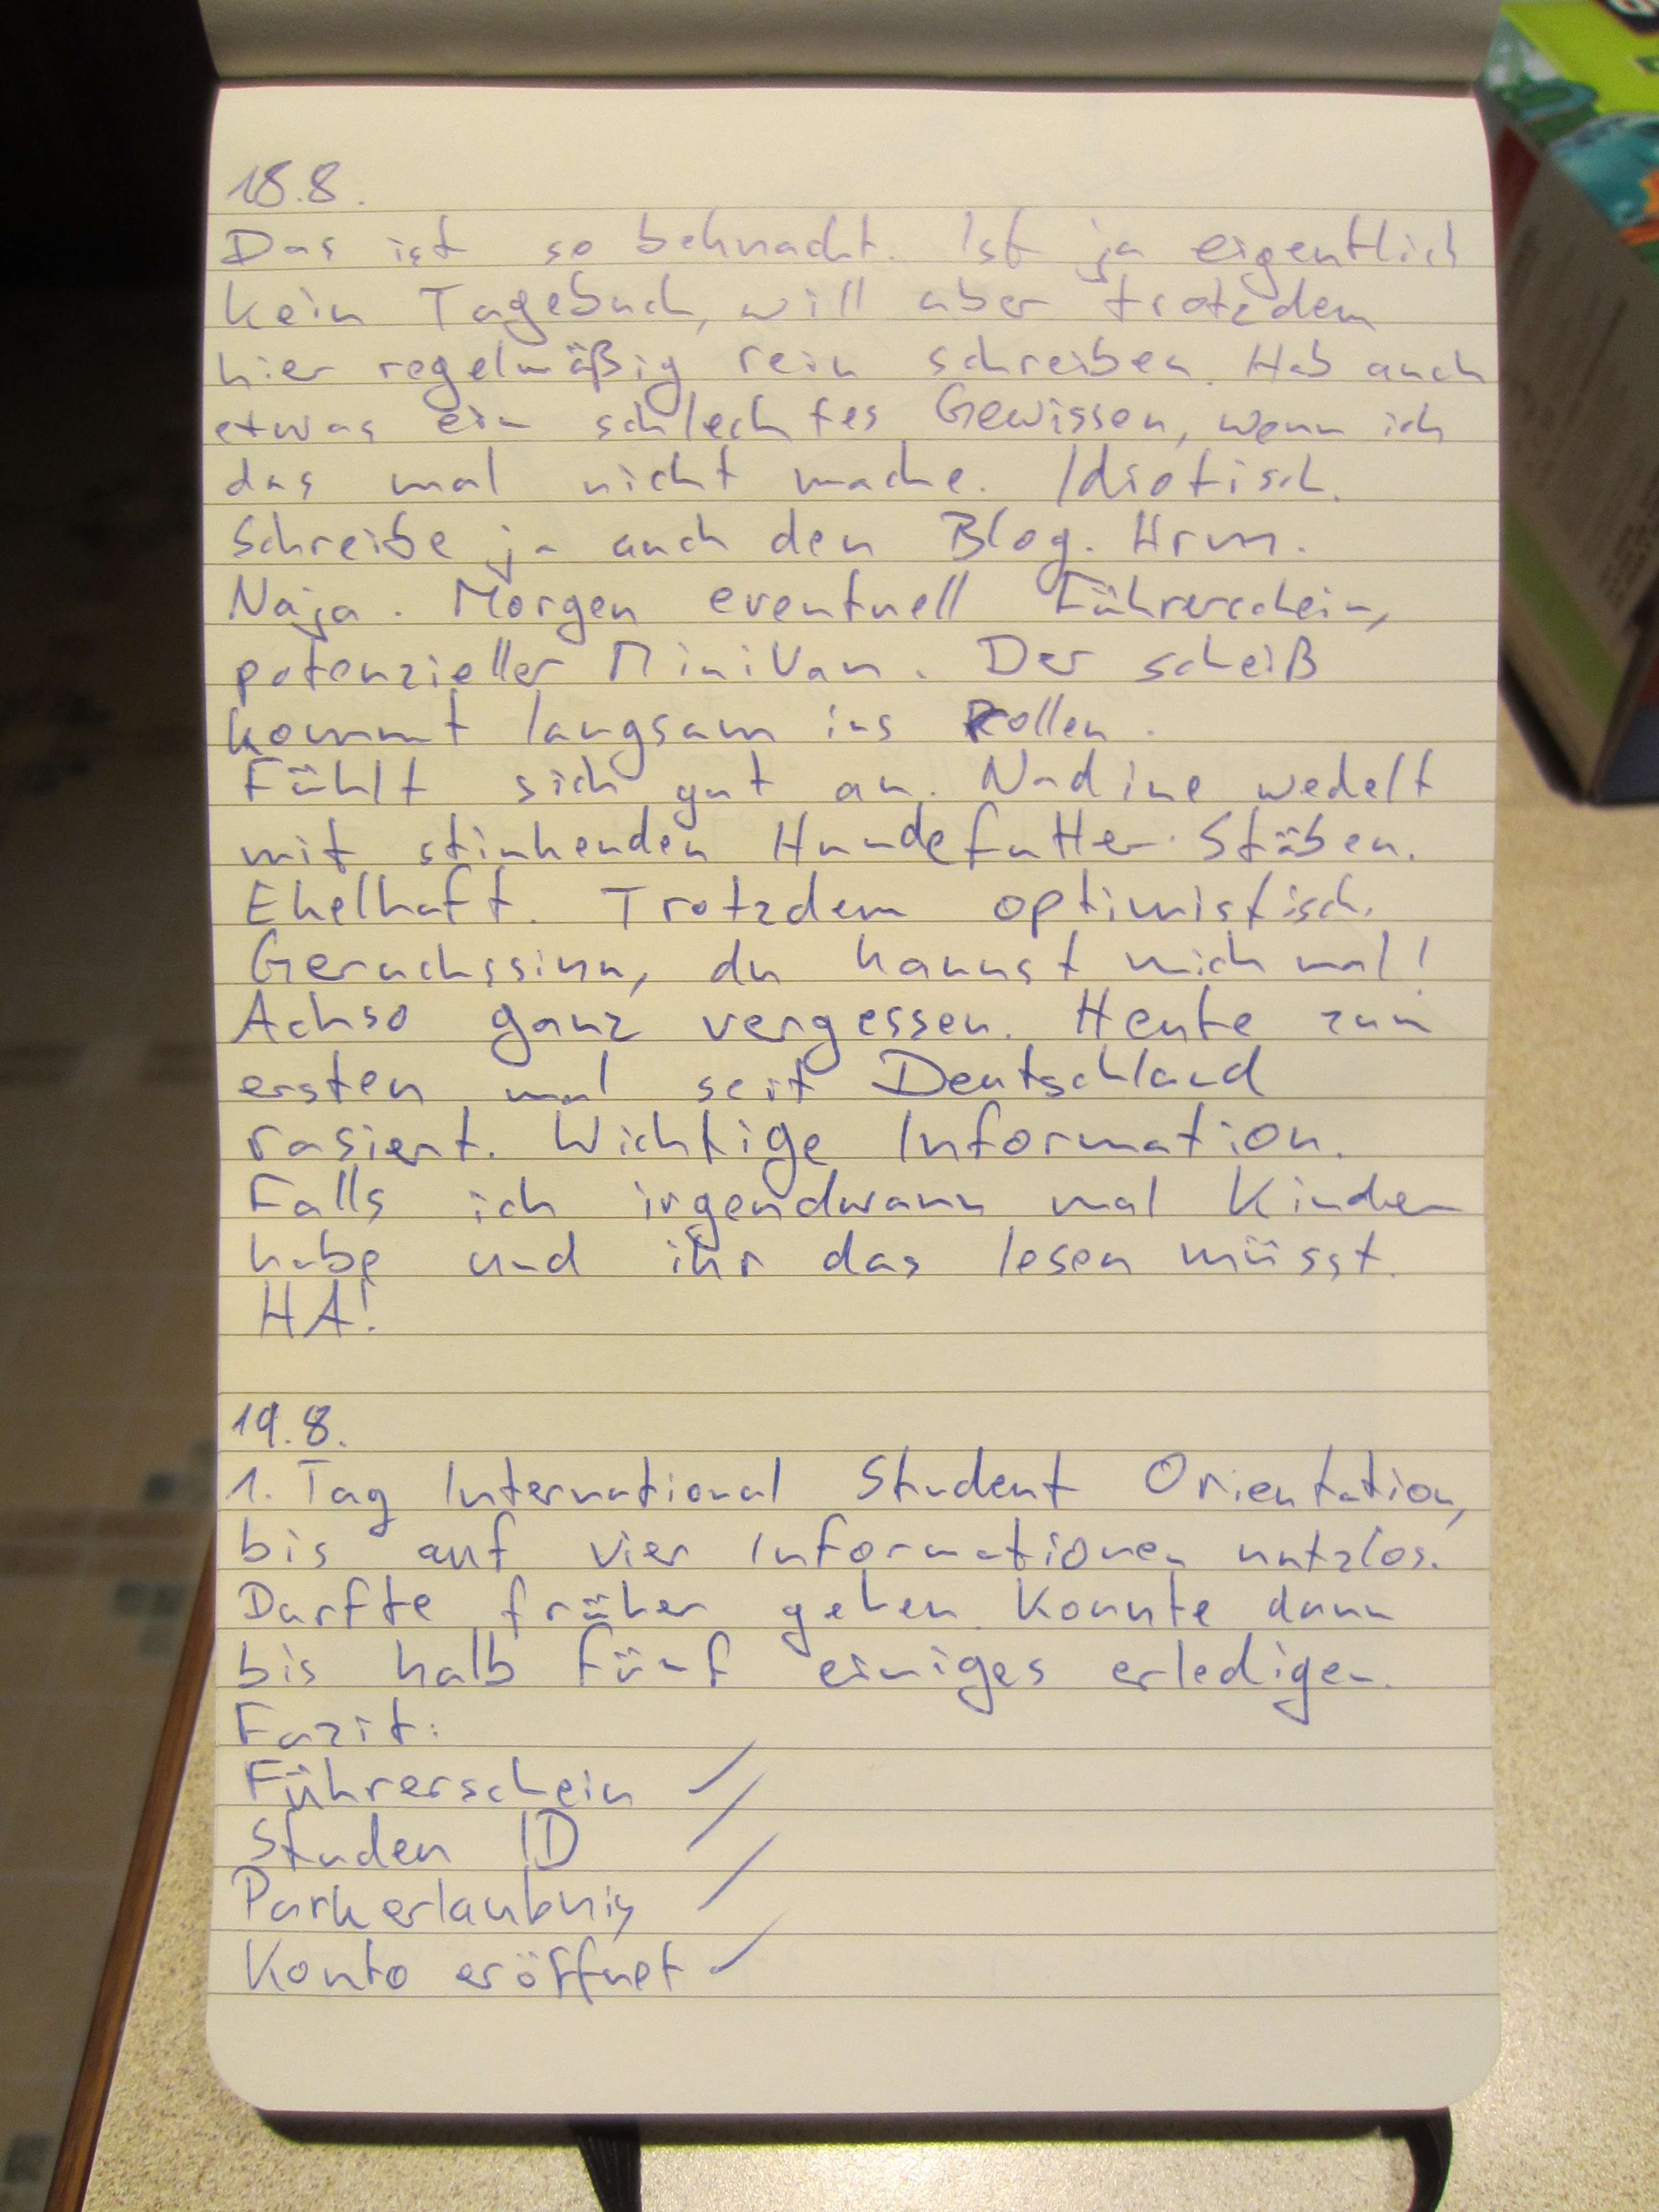 18.8.
Das ist so beknackt. Ist ja eigentlich
kein Tagebuch, will aber trotzdem
hier regelmäßig rein schreiben. Hab auch
etwas ein schlechtes Gewissen, wenn ich
das mal nicht mache. Idiotisch.
Schreibe ja auch den Blog. Hrm.
Naja. Morgen eventuell Führerschein,
potenzieller MiniVan. Der scheiß
kommt langsam ins Rollen.
Fühlt sich gut an. Nadine wedelt
mit stinkenden Hundefutter-Stäben.
Ekelhaft. Trotzdem optimistisch.
Geruchssinn, du kannst mich mal!
Achso ganz vergessen. Heute zum
ersten mal seit Deutschland
rasiert. Wichtige Information.
Falls ich irgendwann mal Kinder
habe und ihr das lesen müsst.
HA!
19.8.
1. Tag International Student Orientation,
bis auf vier Informationen nutzlos.
Durfte früher gehen. Konnte dann
bis halb fünf einiges erledigen.
Fazit:
Führerschein ✓
Studen ID ✓
Parkerlaubnis ✓
Konto eröffnet ✓